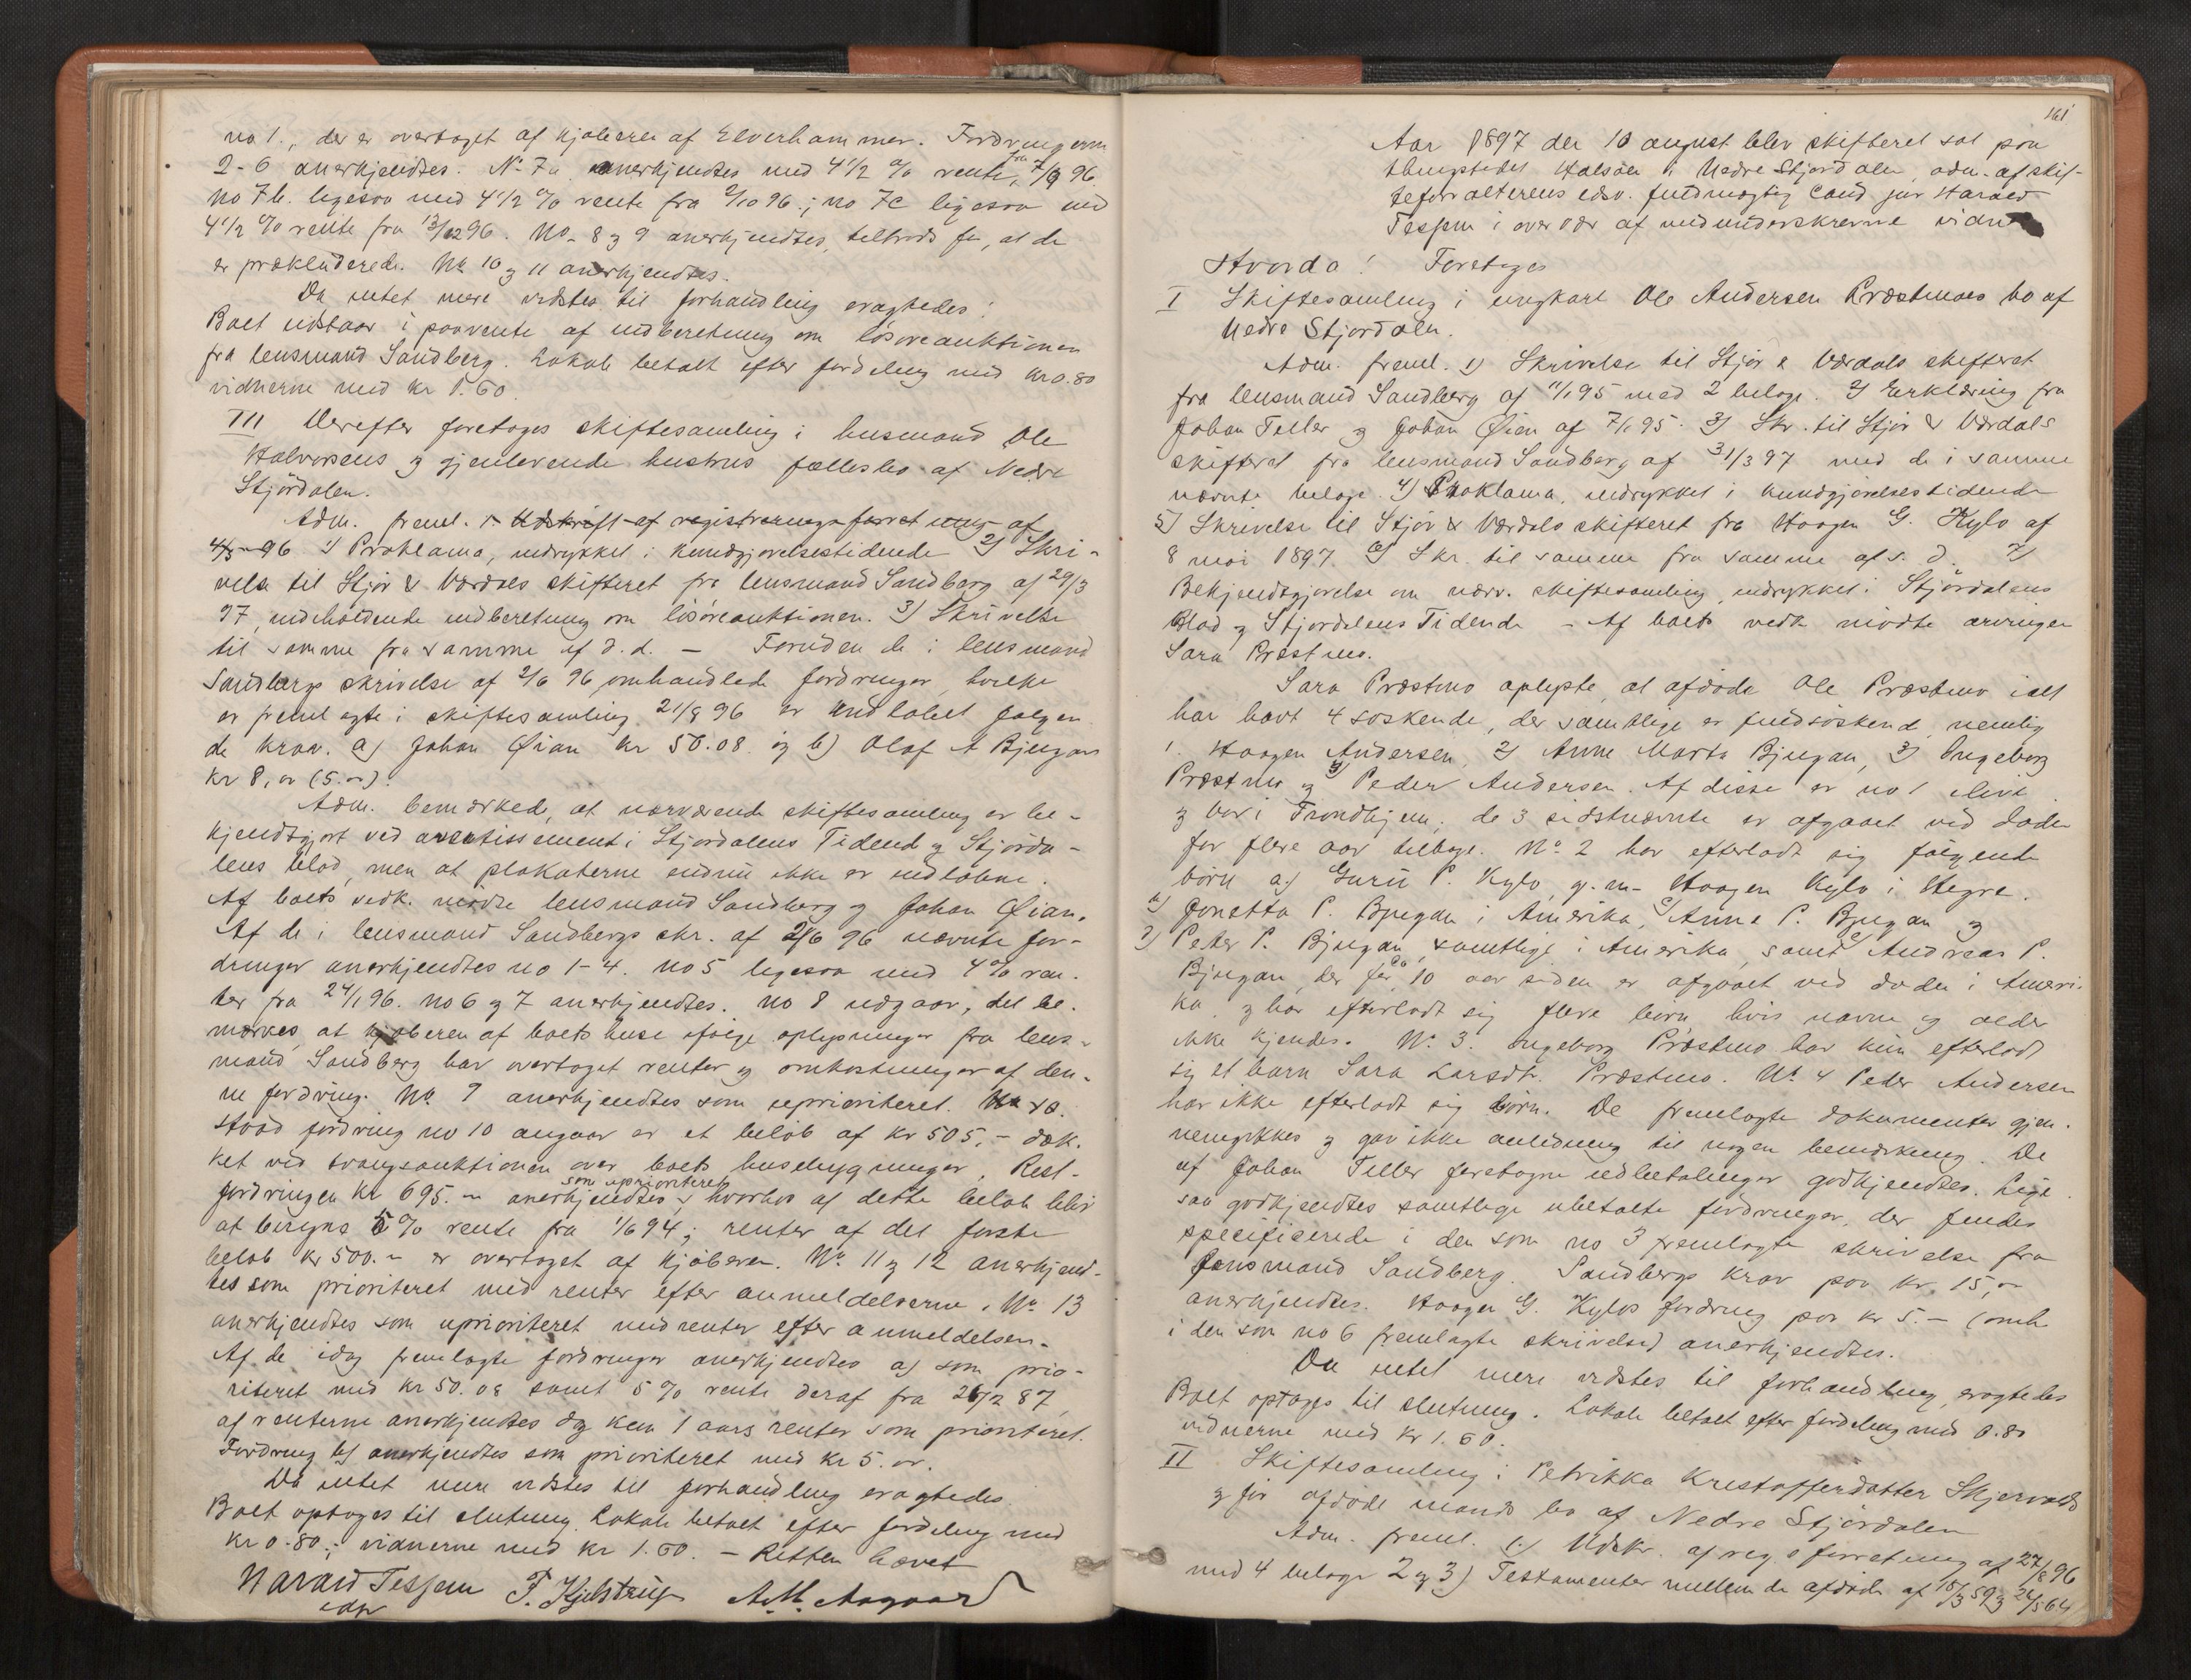 no 1., der er overtaget af kjøberen af Elverhammer. Fordringerne
2-6 anerkjendtes. No 7a anerkjendtes med 4 1/2 % rente fra 7/9 96.
no 7b. ligesaa med 4 1/2 % rente fra 2/10 96.; no 7c ligesaa med
4 1/2 % rente fra 13/12 96. No. 8 g 9 anerkjendtes, tiltrods for, at de
er prækluderede. No 10 g 11 anerkjendtes.
Da intet mere vidstes til forhandling eragtedes:
Boet udstaar i paavente af indberetning om løsøreauktionen
fra lensmand Sandberg. Lokale betalt efter fordeling med kr 0.80
vidnerne med kr 1.60.
III Derefter foretoges skiftesamling i husmand Ole
Halvorsens g gjenlevende hustrus fællesbo af Nedre
Stjørdalen.
Adm. freml. 1. Udskrift af registreringsforretning af
4/5 96 1) Proklama, indrykket i kundgjørelsestidende 2) Skri-
velse til Stjør & Værdals skifteret fra lensmand Sandberg af 29/3
97, indeholdende indberetning om løsøreauktionen. 3) Skrivelse
til samme fra samme af d. d. — Foruden de i lensmand
Sandbergs skrivelse af 2/6 96 omhandlede fordringer, hvilke
er fremlagte i skiftesamling 21/8 96 er indløbet følgen
de krav. a) Johan Øian kr 50.08 og b) Olaf A Bjugan
kr 8, or (5.-)
Adm. bemærkede, at nærværende skiftesamling er be-
kjendtgjort ved avertissement i Stjørdalens Tidend g Stjørda-
lens blad, men at plakaterne endnu ikke er indløbne.
Af boets vedk. mødte lensmand Sandberg g Johan Øian.
Af de i lensmand Sandbergs skr. af 2/6 96 nævnte for-
dringer anerkjendtes no 1-4. no 5 ligesaa med 4% ren.
ter fra 24/1 96. no 6 g 7 anerkjendtes. no 8 udgaar, det be.
mærkes, at kjøberen af boets huse ifølge oplysninger fra lens-
mand Sandberg har overtaget renter g omkostninger af den-
ne fordring. No. 9 anerkjendtes som uprioriteret.
fordring no 10 angaar er et beløb af kr 505.- dæk.
ket ved tvangsauktionen over boets husebygninger. Rest-
fordringen kr 695.- anerkjendtes som uprioriteret, hvorhos af dette beløb blir
at beregne 5% rente fra 1/6 94; renter af det første
beløb kr 500.- er overtaget af kjøberen. No. 11 g 12 anerkjend-
tes som prioriteret med renter efter anmeldelserne. No. 13
anerkjendtes som uprioriteret med renter efter anmeldelsen.
Af de idag fremlagte fordringer anerkjendtes a) som prio-
riteret med kr 50.08 samt 5% rente deraf fra 26/12 87,
af renterne anerkjendtes dog kun 1 aars renter som prioriteret.
Fordring b) anerkjendtes som prioriteret med kr 5. or.
Da intet mere vidstes til forhandling eragtedes.
Boet optoges til slutning. Lokale betalt efter fordeling med
kr 0.80.; vidnerne med kr 1.60. — Retten hævet
Harald Tessem F. Kjelstrup A. M. Aagaard
edsv
161
Aar 1897 den 10 august blev skifteret sat paa
thingstedet Halsøen i Nedre Stjørdalen, adm. af skif-
teforvalterens edsv. fuldmægtig cand jur Harald
Tessem i overvær af medunderskrevne vidner
Hvorda! Foretoges
I Skiftesamling i ungkarl Ole Andersen Præstmoes bo af
Nedre Stjørdalen.
Adm. freml. 1) Skrivelse til Stjør & Værdals skifteret
fra lensmand Sandberg af 11/1 95 med 2 bilage. 2) Erklæring fra
Johan Teller g Johan Øian af 7/1 95. 3) Skr. til Stjør & Værdals
skifteret fra lensmand Sandberg af 31/3 97 med de i samme
nævnte bilage. 4) Proklama, indrykket i kundgjørelsestidende
5) Skrivelse til Stjør & Værdals skifteret fra Haagen G. Kylo af
8 mai 1897. 6) Skr. til samme fra samme af s. d. 7)
Bekjendtgjørelse om nærv. skiftesamling, indrykket i Stjørdalens
Blad g Stjørdalens Tidende — Af boets vedk mødte arvingen
Sara Præstmo.
Sara Præstmo oplyste, at afdøde Ole Præstmo ialt
har havt 4 søskende, der samtlige er fuldsøskend, nemlig
1. Haagen Andersen, 2) Anne Marta Bjugan, 3) Ingeborg
Præstmo g 4) Peder Andersen. Af disse er no 1 ilive
g bor i Trondhjem; de 3 sidstnævnte er afgaaet ved døden
for flere aar tilbage. No. 2 har efterladt sig følgende
børn a) Guru P. Kylo, g. m. Haagen Kylo i Hegre.
b) Jonetta P. Bjugan i Amerika, c) Anna P. Bjugan g
d) Peter P. Bjugan, samtlige i Amerika, samt e) Andreas P.
Bjugan, der for ca 10 aar siden er afgaaet ved døden i Ameri-
ka, g har efterladt sig flere børn, hvis navne og alder
ikke kjendes. No. 3. Ingeborg Præstmo har kun efterladt
sig et barn Sara Larsdtr. Præstmo. No. 4 Peder Andersen
har ikke efterladt sig børn. De fremlagte dokumenter gjen-
nemgikkes g gav ikke anledning til nogen bemærkning. De
af Johan Teller foretagne udbetalinger godkjendtes. Lige
saa godkjendtes samtlige ubetalte fordringer, der findes
specificerede i den som no 3 fremlagte skrivelse fra
lensmand Sandberg. Sandbergs krav paa kr. 15,-
anerkjendtes. Haagen G. Kylos fordring paa kr 5.- (omh
i den som no 6 fremlagte skrivelse) anerkjendtes.
Da intet mere vidstes til forhandling, eragtedes
Boet optages til slutning. Lokale betalt efter fordeling med 0.80
vidnerne med kr 1.60.
II Skiftesamling i Petrikka Kristofferdatter Skjervolds
g før afdøde mands bo af Nedre Stjørdalen
Adm. freml. 1.) Udskr. af reg.s forretning af 27/8 96
med 4 bilage 2 g 3) Testamenter mellem de afdøde af 15/3 59 g 24/5 64